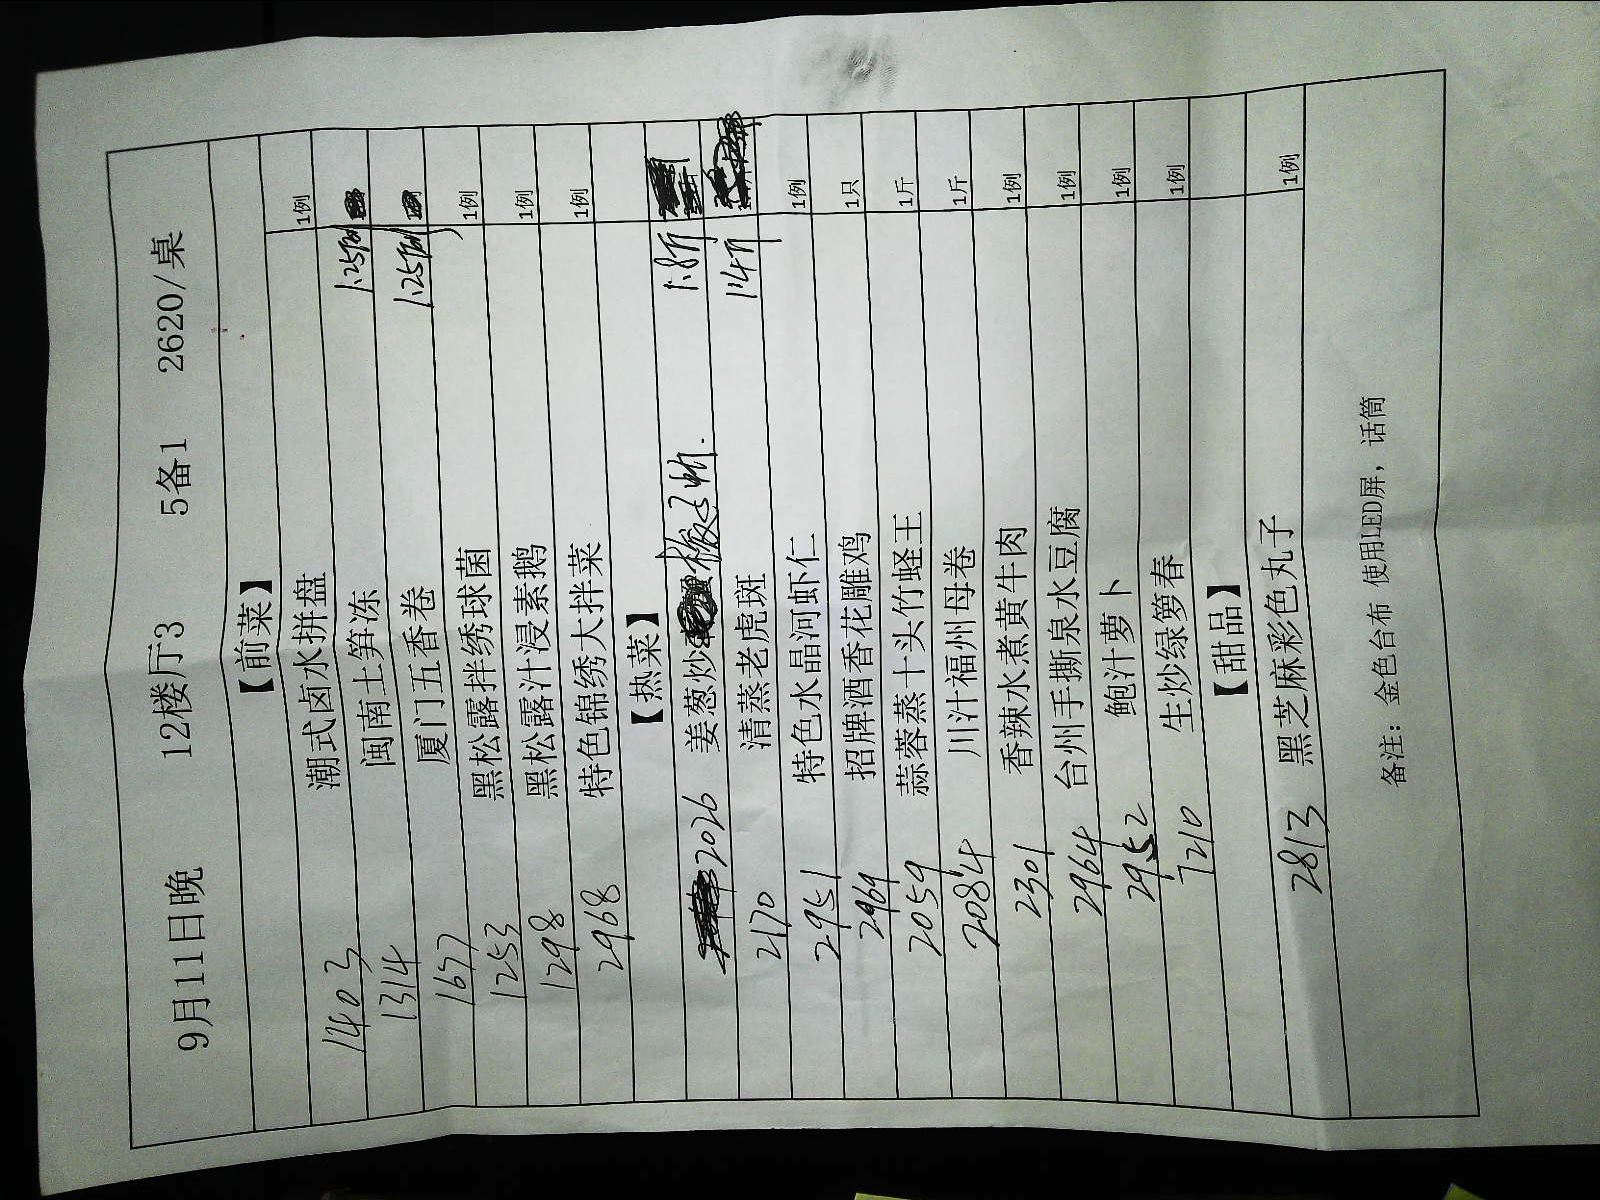 9月11日晚 12楼厅3 5备1 2620/桌
【前菜】
1403 潮式卤水拼盘 1例
1314 闽南土笋冻 1.25份
1677 厦门五香卷 1.25份
1253 黑松露拌绣球菌 1例
1298 黑松露汁浸素鹅 1例
2968 特色锦绣大拌菜 1例
【热菜】
2026 姜葱炒 1.8斤
2170 清蒸老虎斑 1.4斤
2951 特色水晶河虾仁 1例
2969 招牌酒香花雕鸡 1只
2059 蒜蓉蒸十头竹蛏王 1斤
2084 川汁福州母卷 1斤
2301 香辣水煮黄牛肉 1例
2964 台州手撕泉水豆腐 1例
2952 鲍汁萝卜 1例
7210 生炒绿箩春 1例
【甜品】
2813 黑芝麻彩色丸子 1例
备注：金色台布 使用LED屏，话筒